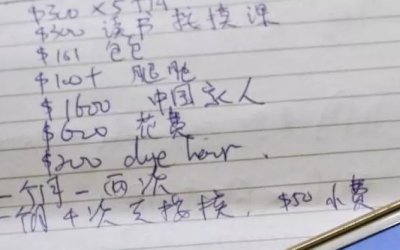 $300 × 5
$300 读书 按摩课
$161 包包
$100+ 肥肥
$1600 中国家人
$600 花费
$200 dye hair.
一个月一两次
一个月4次去按摩, $50 小费